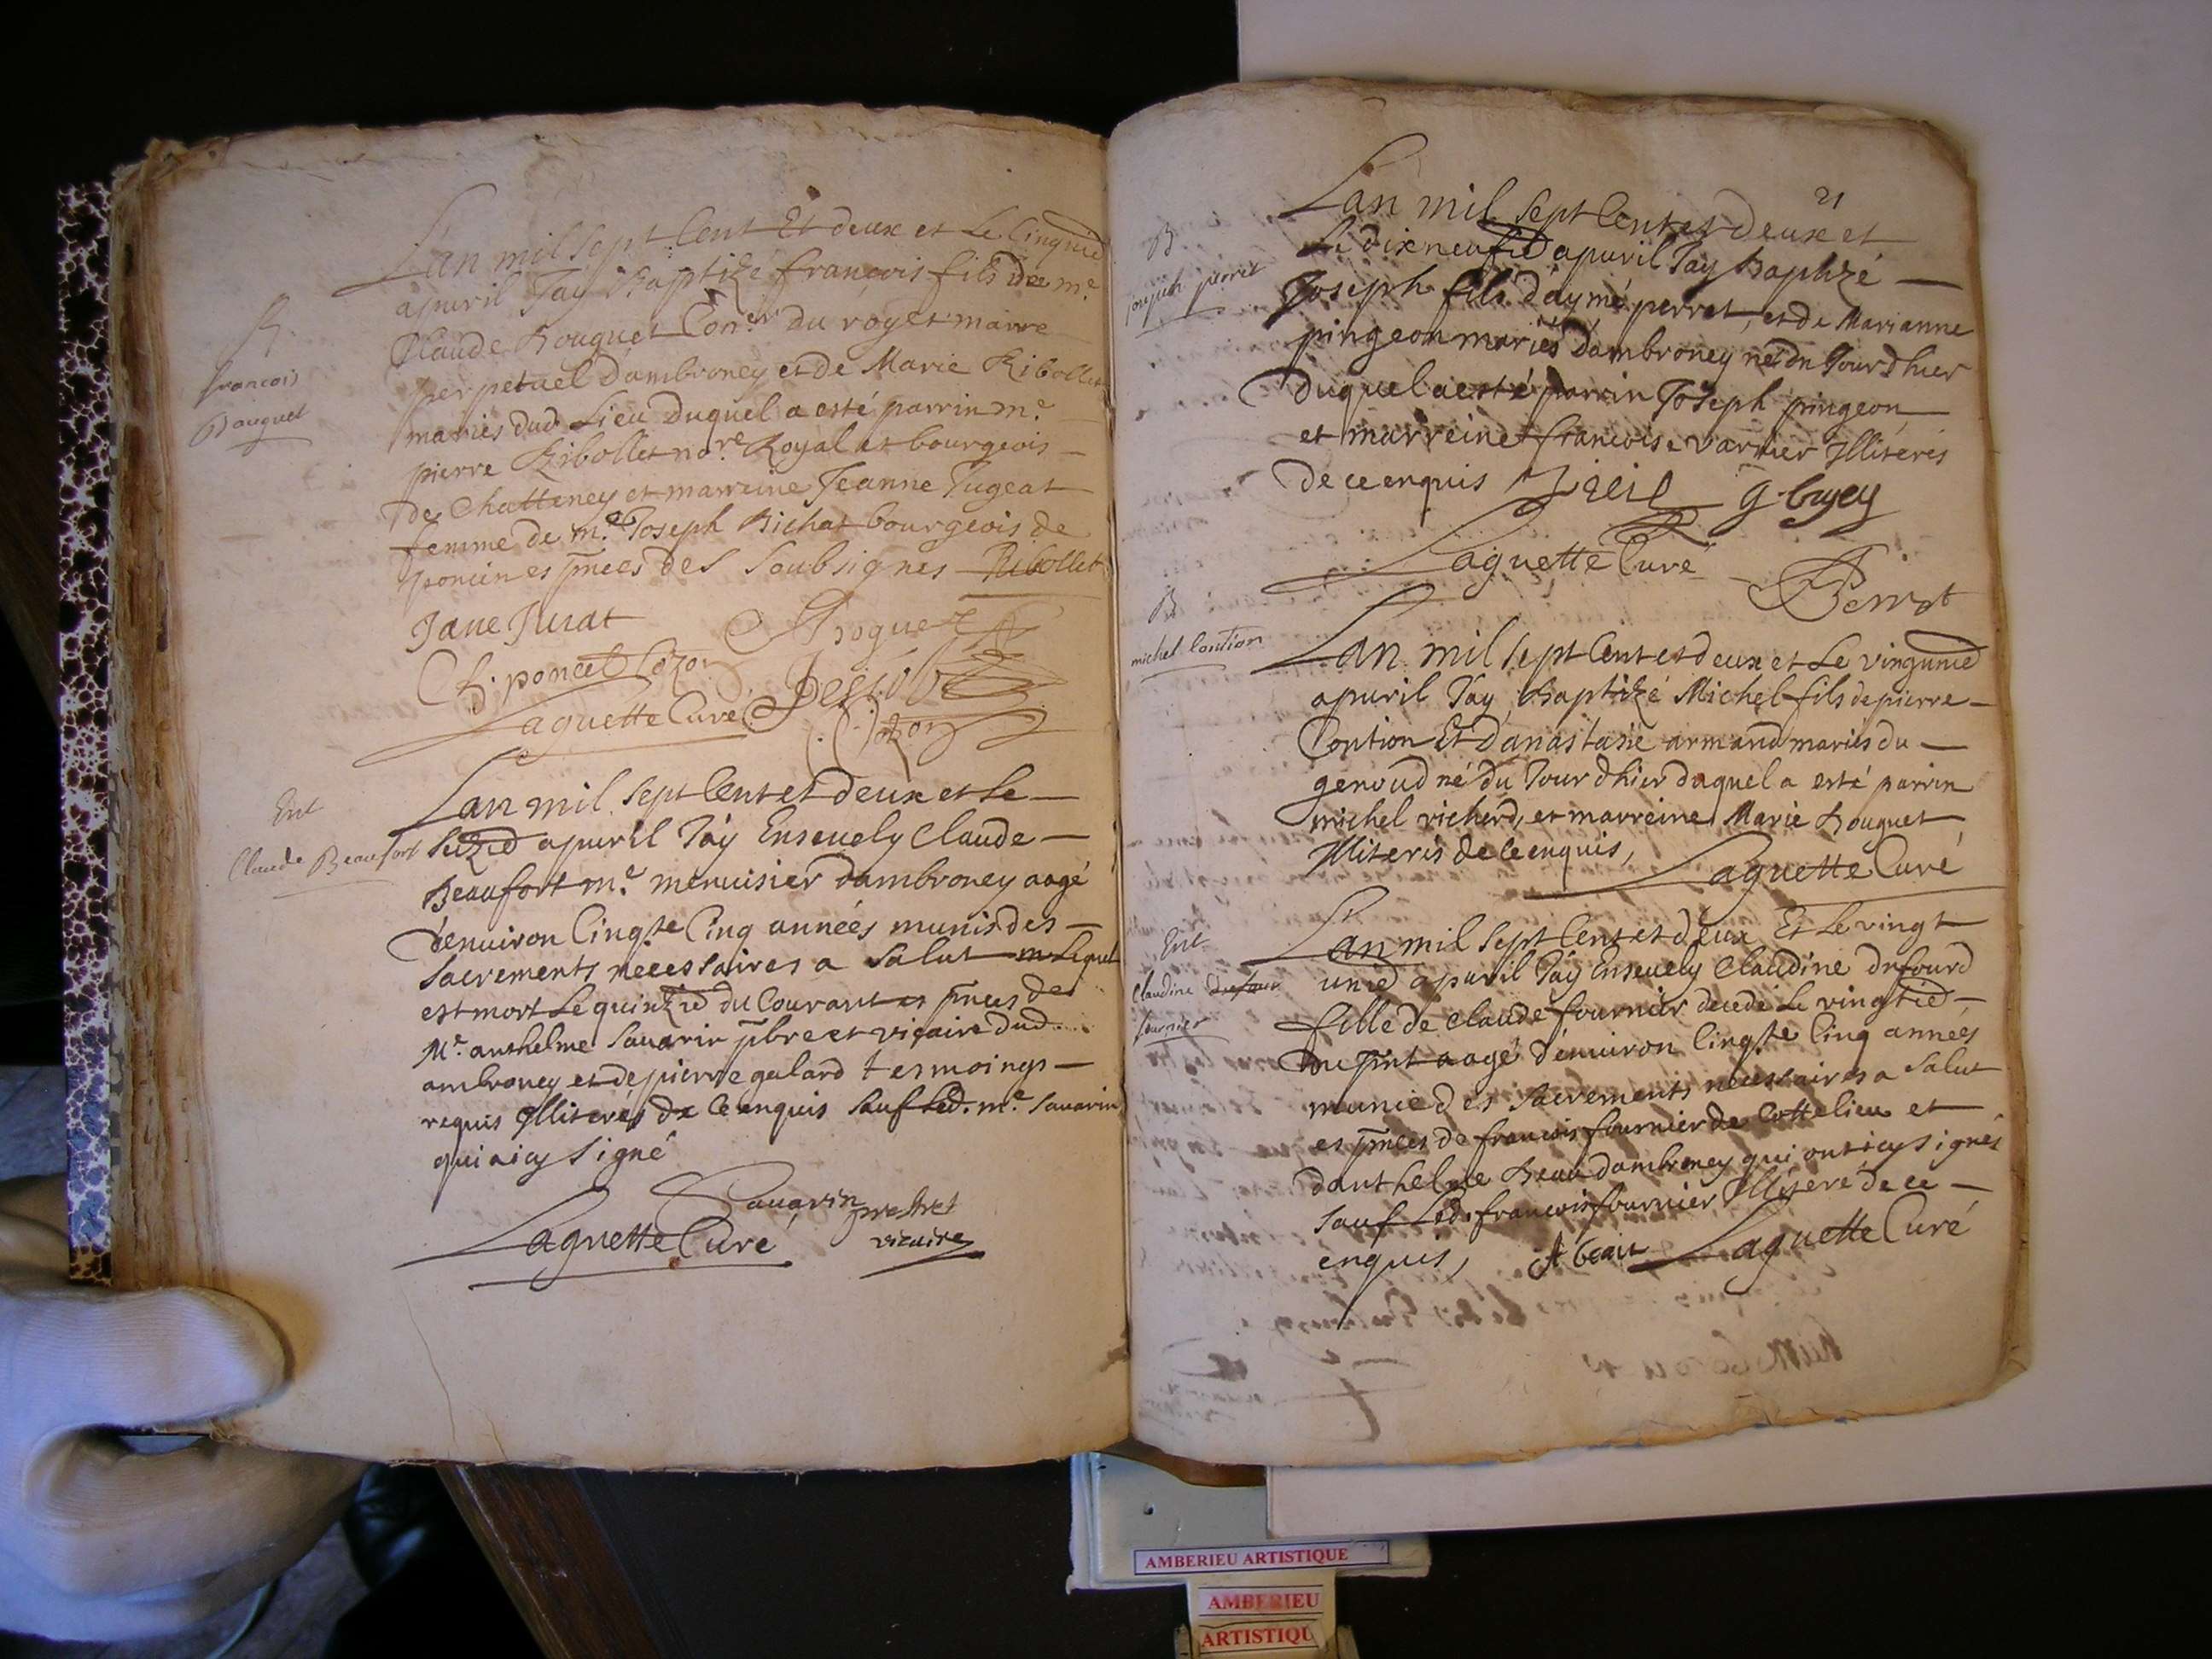 L'an mil sept Cent Et deux et Le Cinquie
apuril Jay Baptizé francois fils de me
Claude Bouquet Con.er du roy et maire
perpetuel d'ambroney et de Marie Ribollet
mariés dud. Lieu duquel a esté parrin m.e
pierre Ribollet no.re Royal et bourgeois
de Chatteney et marreine Jeanne Jugeat
femme de m.e Joseph Bichat bourgeois de
poncin es pnces des Soubsignés Ribollet
Jane Jurat
Bouquet
poncet Cozon
Laguette Curé
Cozon
B.
francois
Bouquet
L'an mil sept Cent et deux et Le
seizie apuril Jay Enseuely Claude
Beaufort m.e menuisier dambroney aagé
denuiron Cinqte Cinq années munis des
sacrements necessaires a Salut Lequel
est mort Le quinzie du Courant es pnces de
M.e anthelme Sauarin pbre et vicaire dud.
ambroney et de pierre galard tesmoings
requis Illiterés de ce enquis sauf Led. m.e Sauarin
qui a icy signé
Sauarin prestre
Laguette Curé
vicaire
Ent
Claude Beaufort
21
L'an mil sept Cent et deux et
Le dixneufie apuril Jay Baptizé
Joseph fils d'aymé perret, et de Marianne
pingeon mariés dambroney né du Jourdhier
duquel a esté parrin Joseph pingeon
et marreine francoise varnier Illiterés
de ce enquis
Laguette Curé
Perret
B
Joseph perret
L'an mil sept Cent et deux et Le vingunie
apuril Jay Baptizé Michel fils de pierre
Contion Et Danastasie armand mariés du
genoud né du Jour dhier duquel a esté parrin
michel richerd, et marreine Marie Bouquet
Illiterés de ce enquis,
Laguette Curé
B
michel Contion
L'an mil sept Cent et deux Et Le vingt
unie apuril Jay Enseuely Claudine dufourd
fille de Claude fournier decedé Le vingtie
du pnt aagé d'enuiron Cinqte Cinq années
munie des sacrements necessaires a salut
es pnces de francois fournier de Cottelieu et
danthelme Beau dambroney qui ont icy signés
sauf Led. francois fournier Illiteré de ce
enquis,
Laguette Curé
Ent
Claudine dufour
fournier
AMBERIEU ARTISTIQUE
AMBERIEU
ARTISTIQU